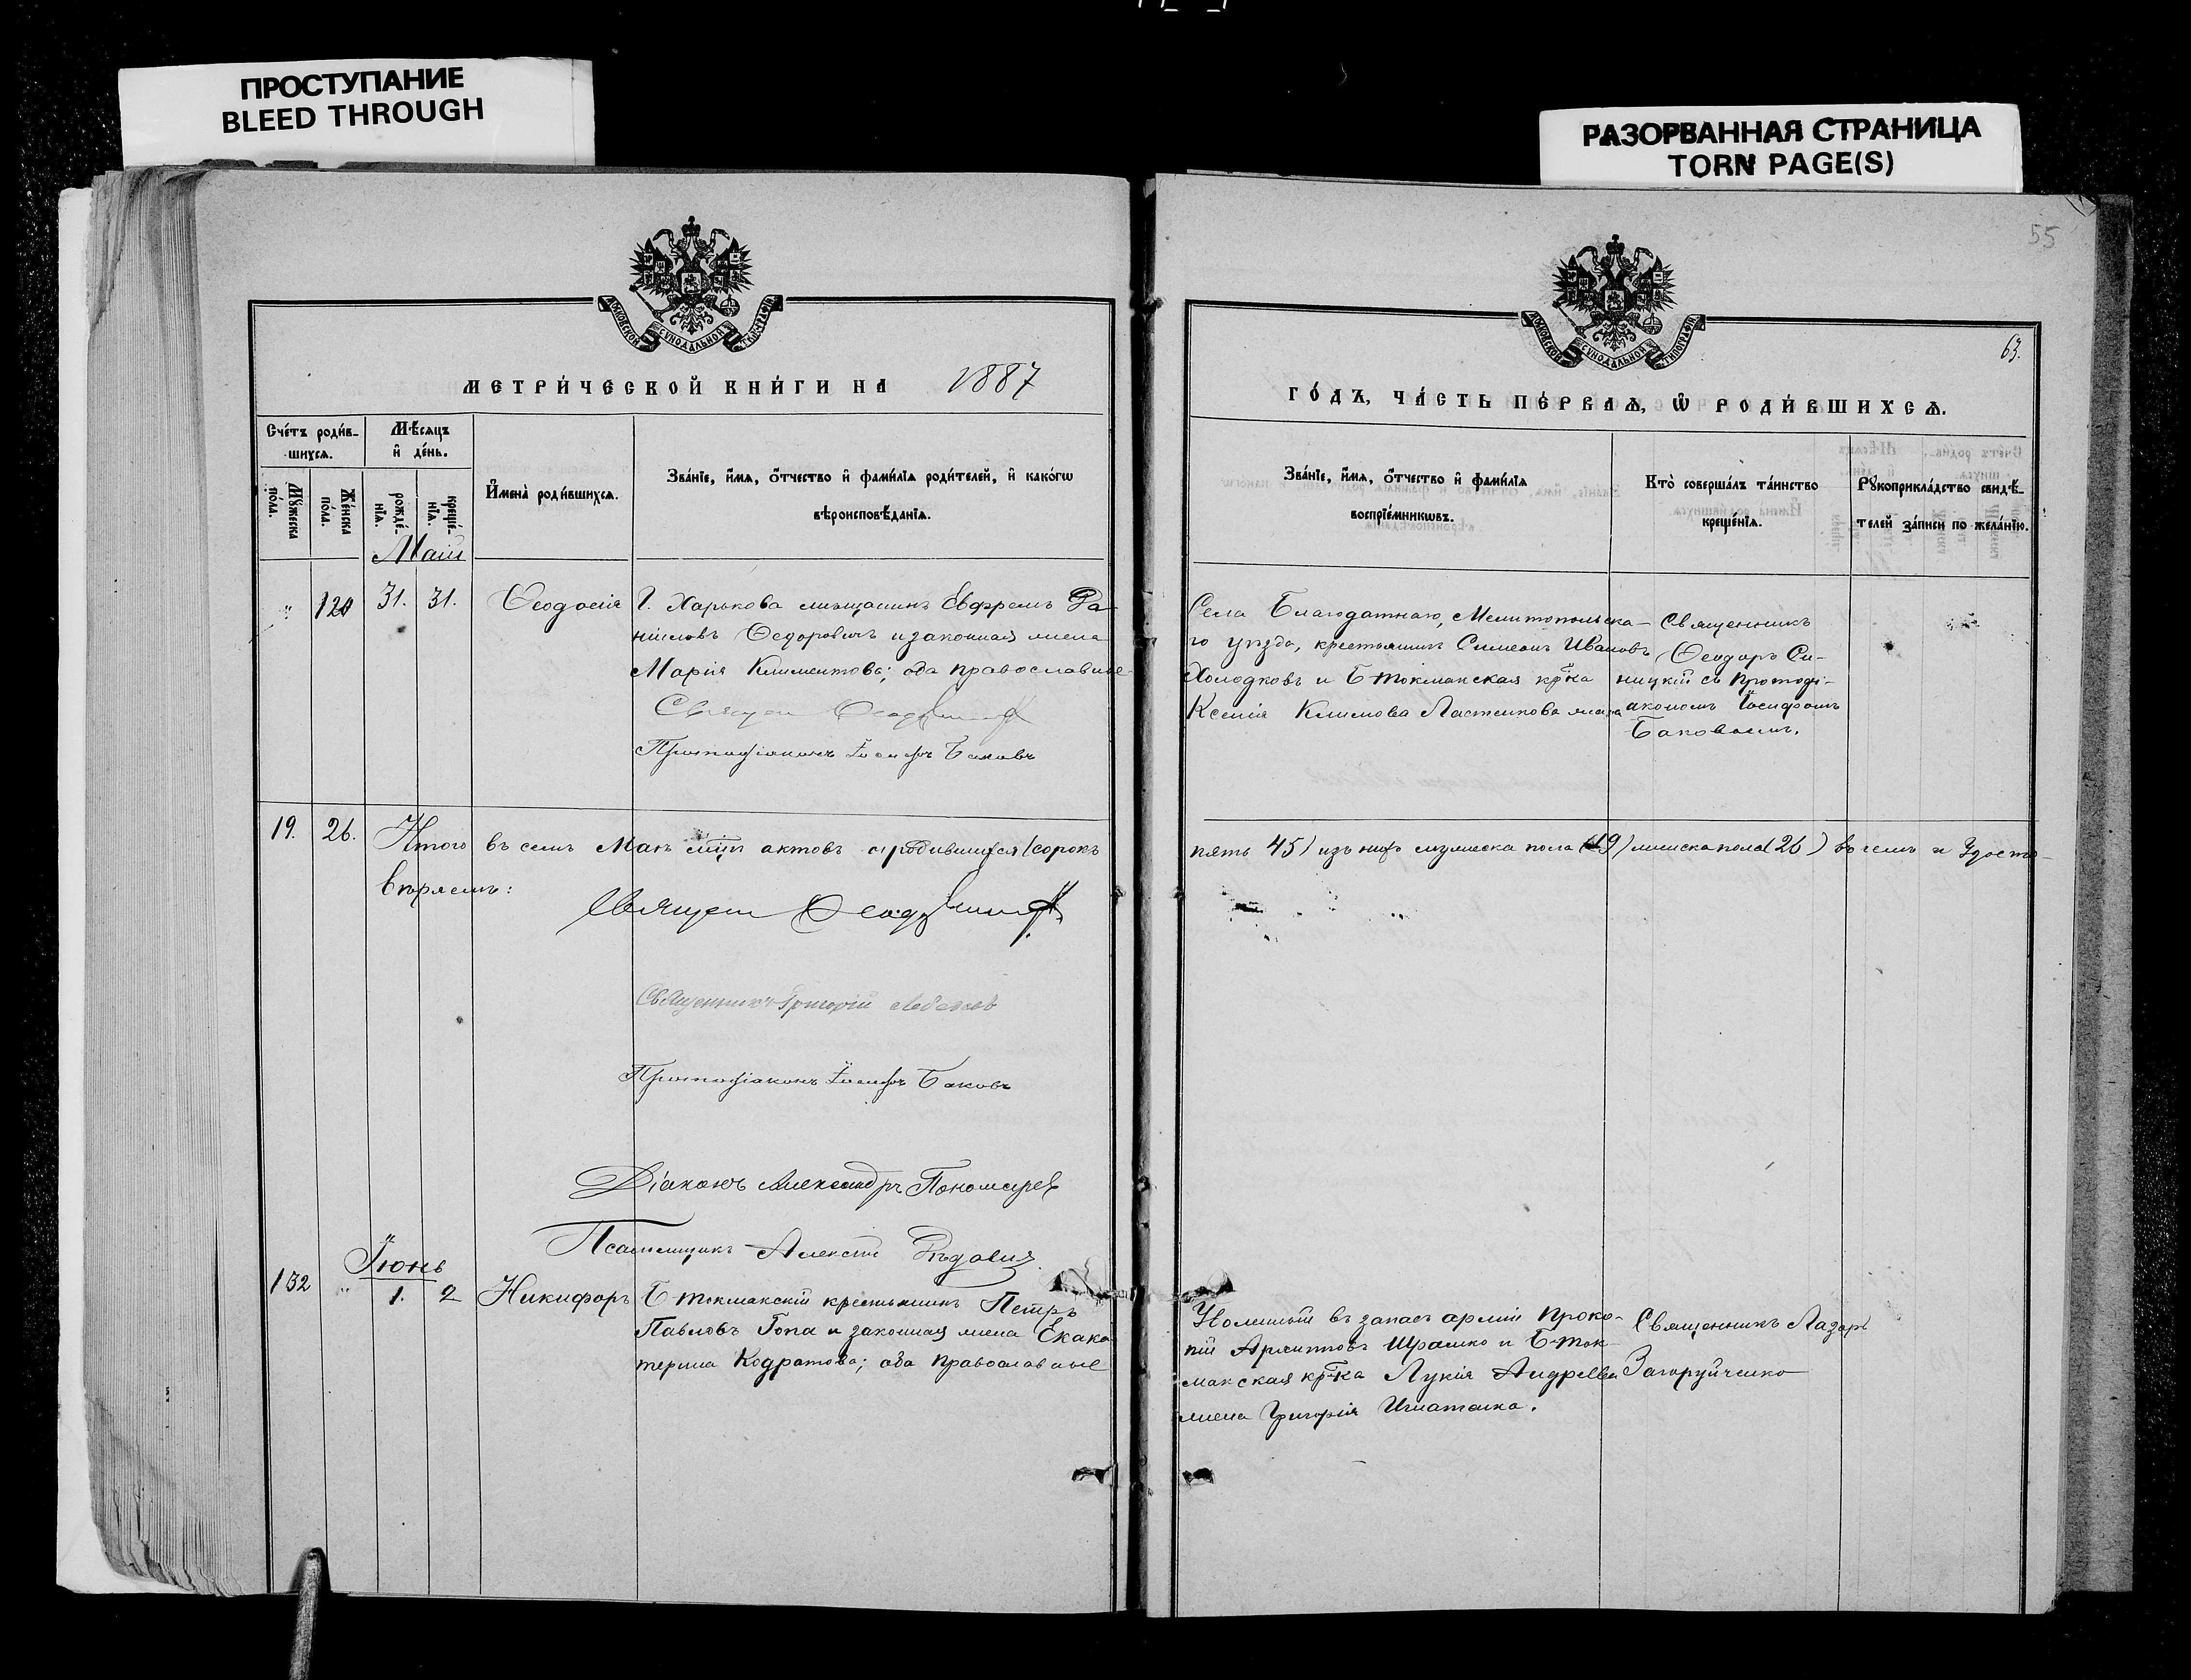 ПРОСТУПАНИЕ
BLEED THROUGH
РАЗОРВАННАЯ СТРАНИЦА
TORN PAGE(S)
55
63.
МОСКОВСКОЙ СУНОДАЛЬНОЙ ТИПОГРАФІИ
МОСКОВСКОЙ СУНОДАЛЬНОЙ ТИПОГРАФІИ
МЕТРИ́ЧЕСКОЙ КНИ́ГИ НА 1887
ГО́ДЪ, ЧА́СТЬ ПЕ́РВАѦ, Ѡ҆ РОДИ́ВШИХСѦ.
Сче́тъ роди́в-
шихсѧ.
Мѣ́сѧцъ
и҆ де́нь.
Мꙋ́жеска
по́ла.
Же́нска
по́ла.
рожде́-
нїѧ.
креще́-
нїѧ.
И҆мена̀ роди́вшихсѧ.
Зва́нїе, и҆́мѧ, ѻ҆́тчество и҆ фами́лїѧ роди́телей, и҆ како́гѡ
вѣроисповѣ́данїѧ.
Зва́нїе, и҆́мѧ, ѻ҆́тчество и҆ фами́лїѧ
воспрїе́мникѡвъ.
Кто̀ соверша́лъ та́инство
креще́нїѧ.
Рꙋкоприкла́дство свидѣ́-
телей за́писи по жела́нїю.
Май
" 120 31. 31. Ѳеодосія Г. Харькова мѣщанинъ Ефремъ Да-
ніиловъ Ѳедоровичъ и законная жена
Марія Климентова; оба православные
Священ Ѳеодоръ
Протодіаконъ Іосифъ Баковъ
Села Благодатнаго, Мелитопольска-
го уѣзда, крестьянинъ Симеонъ Ивановъ
Холодковъ и Б-Токмакская кр-ка
Ксенія Климова Ластенкова жена
Священникъ
Ѳеодоръ Си-
ницкій съ протоді-
акономъ Іосифомъ
Баковымъ.
19. 26. Итого въ семъ Маѣ м-цѣ актовъ о родившихся (сорокъ
пять 45) изъ нихъ мужеска пола (19) женска пола (26) въ чемъ и удосто-
вѣряемъ:
Священ Ѳеодоръ
Священникъ Григорій
Протодіаконъ Іосифъ Баковъ
Діаконъ Александръ Пономарев
Псаломщикъ Алексѣй
Іюнь
132 " 1. 2 Никифоръ Б-Токмакскій крестьянинъ Петръ
Павловъ Гопа и законная жена Екате
терина Кодратова; оба православные
Уволенный въ запасъ арміи Проко-
пій Архиповъ Шрамко и Б-Ток-
макская кр-ка Лукія Андреева
жена Григорія Игнатенка.
Священникъ Лазарь
Загоруйченко